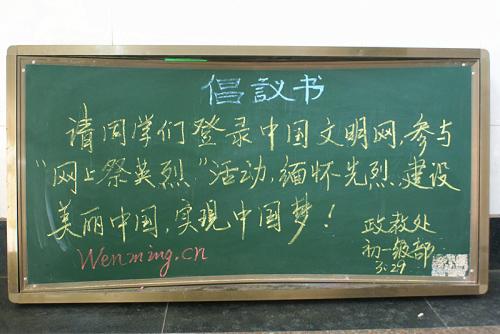 倡议书
请同学们登录中国文明网,参与
“网上祭英烈”活动,缅怀先烈,建设
美丽中国,实现中国梦!
Wenming.cn
政教处
初一级部
3.29